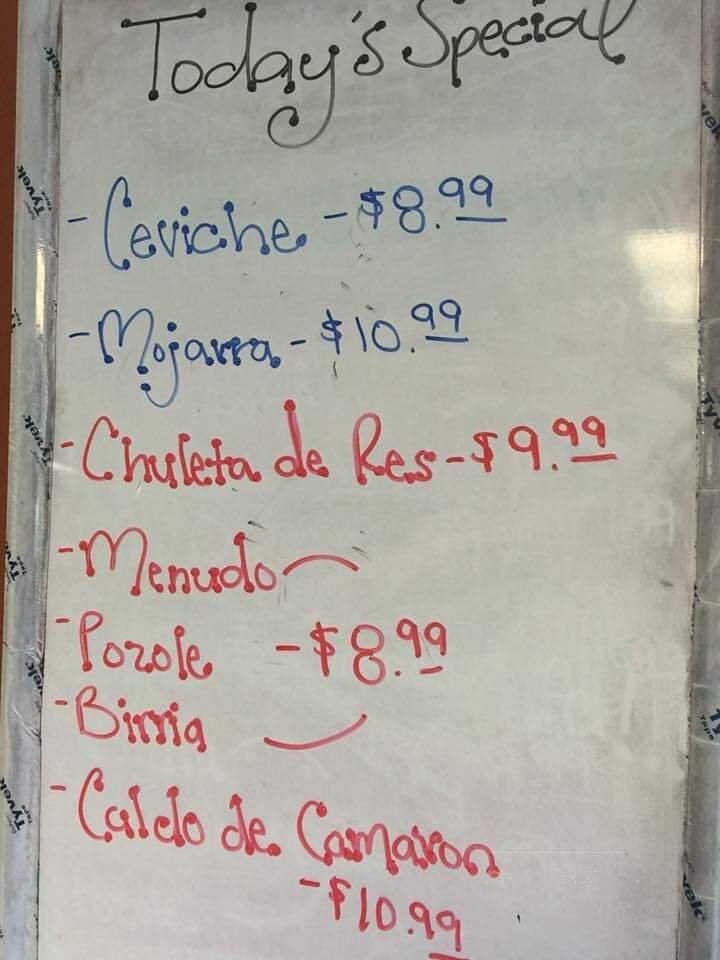 Today's Special
- Ceviche - $8.99
- Mojarra - $10.99
- Chuleta de Res - $9.99
- Menudo
- Pozole - $8.99
- Birria
- Caldo de Camaron
- $10.99
Tyvek
Tyvek
Tyvek
Tyvek
Tyvek